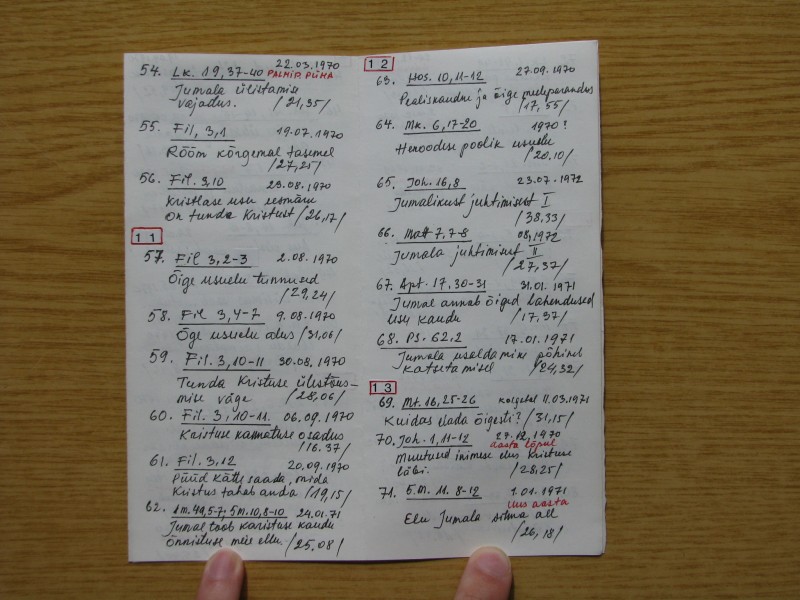 54. Lk. 19,37-40 22.03.1970
PALMIP. PÜHA
Jumala ülistamise
vajadus. /21,35/
55. Fil, 3,1 19.07.1970
Rõõm kõrgemal tasemel
/27,25/
56. Fil. 3,10 23.08.1970
Kristlase usu eesmärk
on tunda Kristust /26,17/
11
57. Fil 3,2-3 2.08.1970
Õige usuelu tunnused
/29,24/
58. Fil 3,4-7 9.08.1970
Õge usuelu alus /31,06/
59. Fil. 3,10-11 30.08.1970
Tunda Kristuse ülestõus-
mise väge /28,06/
60. Fil. 3,10-11. 06.09.1970
Kristuse kannatuse osadus
/16.37/
61. Fil. 3,12 20.09.1970
Püüd kätte saada, mida
Kristus tahab anda /19,15/
62. 1m.49,5-7; 5m.10,8-10 24.01.71
Jumal toob karistuse kaudu
õnnistuse meie ellu. /25.08/
12
63. Hos. 10,11-12 27.09.1970
Pealiskaudne ja õige meeleparandus
/17,55/
64. Mk. 6,17-20 1970?
Heroodese poolik usuelu
/20.10/
65. Joh. 16,8 23.07.1972
Jumalikust juhtimisest I
/38,33/
66. Matt 7,7-8 08,1972
Jumala juhtimisest II
/27,37/
67. Apt. 17,30-31 31.01.1971
Jumal annab õiged lahendused
usu kaudu /17,37/
68. Ps. 62,2 17.01.1971
Jumala usaldamine põhineb
katsetamisel /24,32/
13
69. Mt. 16,25-26 11.03.1971
Kuidas elada õigesti? /31,15/
70. Joh. 1,11-12 27.12.1970
aasta lõpul
Muutused inimese elus Kristuse
läbi. /28,25/
71. 5.m. 11. 8-12 1.01.1971
Uus aasta
Elu Jumala silma all
/26,18/